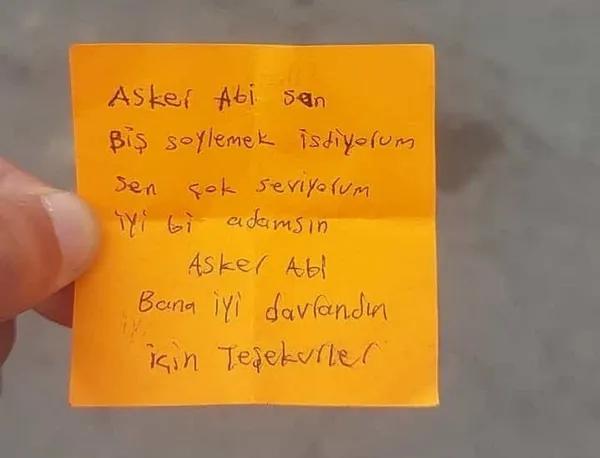 Asker Abi sen
Biş söylemek isdiyorum
sen çok seviyorum
iyi bi adamsın
Asker Abi
Bana iyi davrandın
için Teşekurler